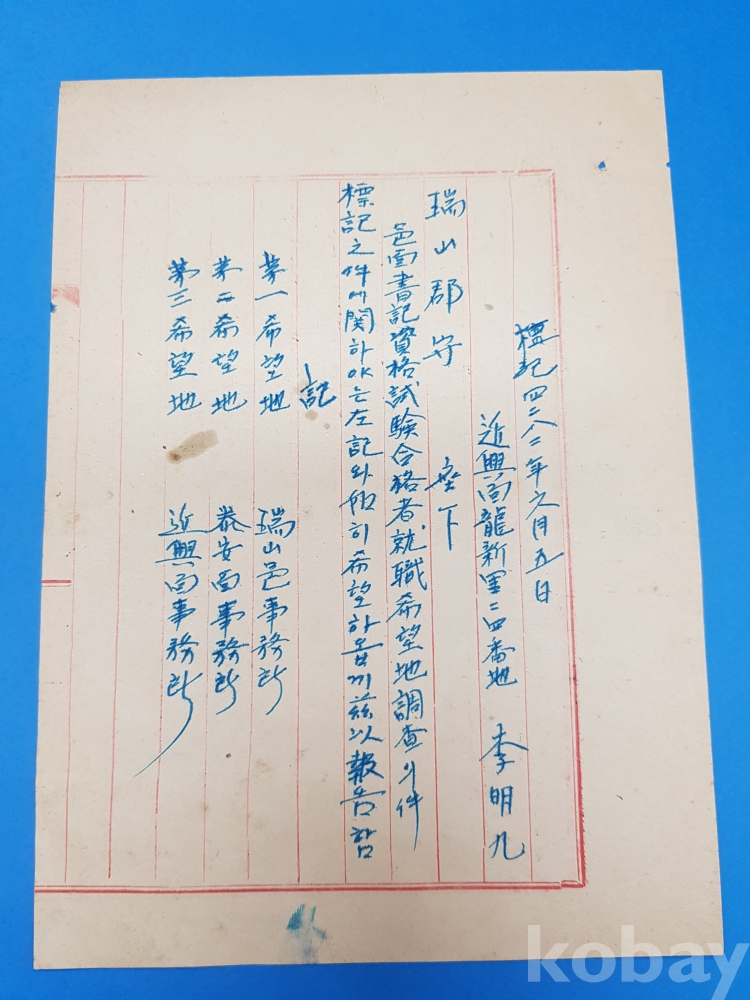 檀記四二八二年六月五日
近興面龍新里二四番地 李明九
瑞山郡守 座下
邑面書記資格試驗合格者就職希望地調査의件
標記之件에関하야는左記와如히希望하옵기玆以報告함
記
第一希望地 瑞山邑事務所
第二希望地 泰安面事務所
第三希望地 近興面事務所
kobay